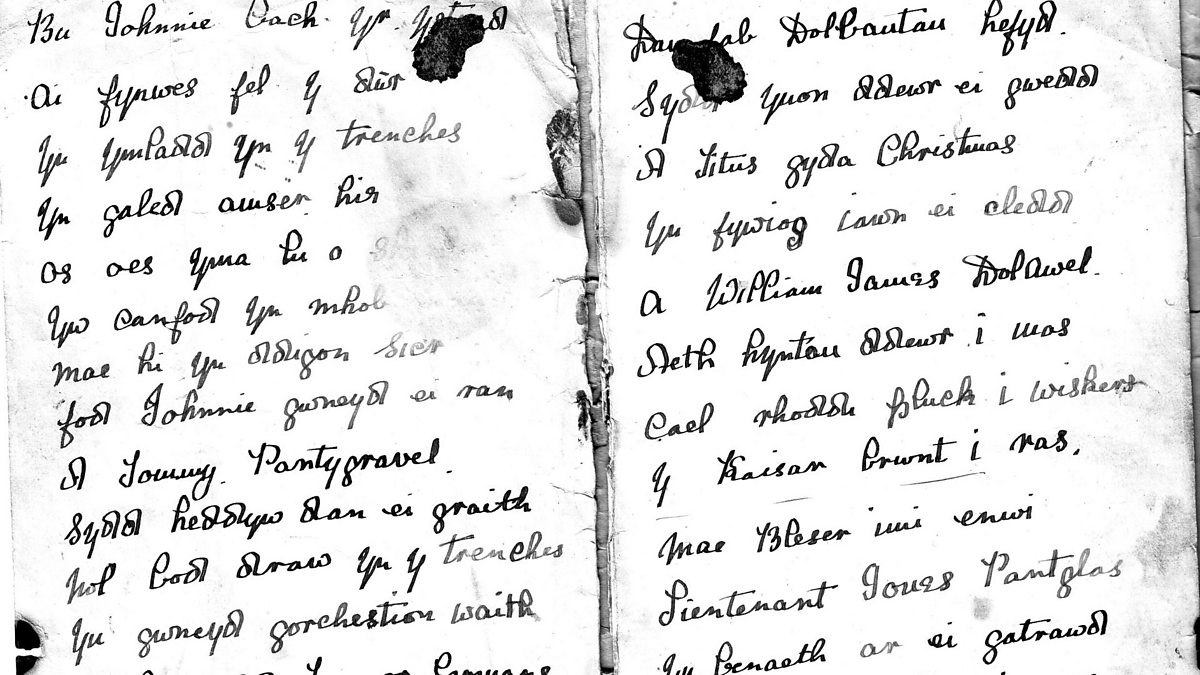 Bu Johnnie bach yr
Ai fynwes fel y dûr
Yn ymladd yn y trenches
Yn galed amser hir
os oes yma lu o
Yw canfod yn mhob
mae hi yn ddigon sicr
fod Johnnie gwneyd ei ran
A Tommy Pantygravel.
Sydd heddyw dan ei graith
Nol bod draw yn y trenches
Yn gwneyd gorchestion waith
Dau fab Dolbantau hefyd.
ynon ddewr ei gwedd
A Titus gyda Christmas
Yn fywiog iawn ei cledd
A William James Dolawel.
Aeth hyntau ddewr i mas
Cael rhoddi pluck i wiskers
Y Kaisar brwnt i ras.
mae Bleser imi enwi
Lientenant Jones Pantglas
Yn benaeth ar ei gatrawd